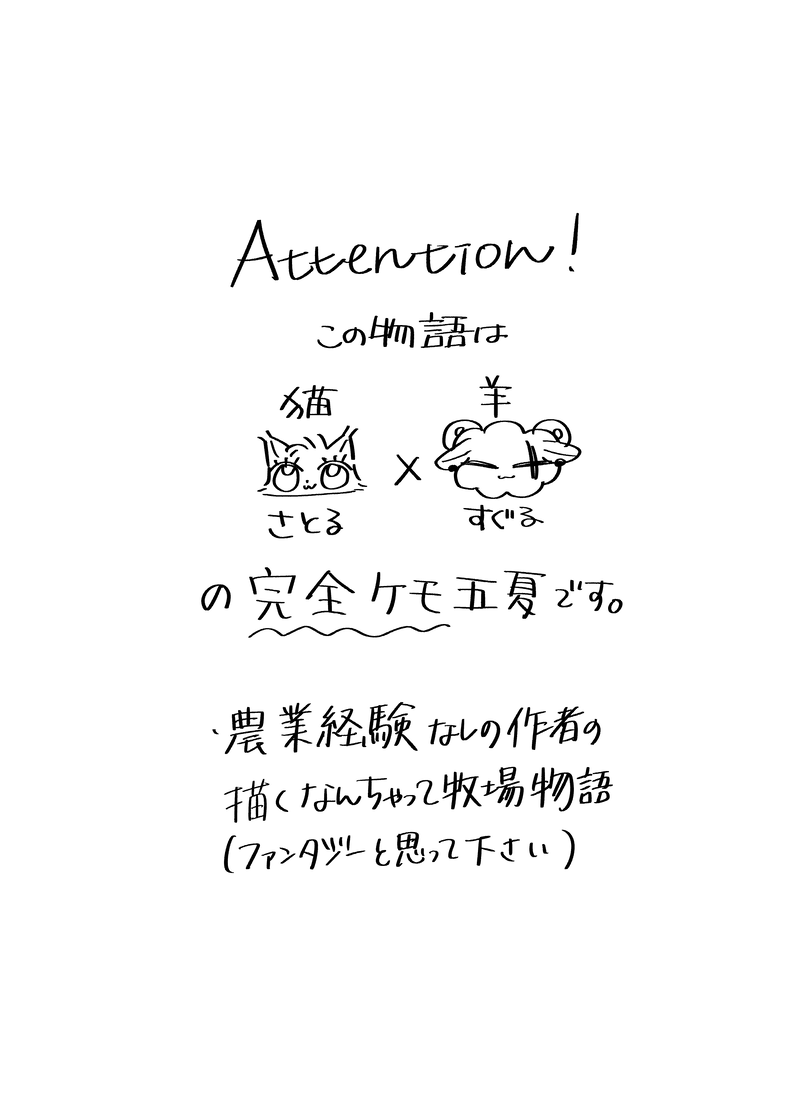 Attention!
この物語は
猫 羊
×
さとる すぐる
の完全ケモ五夏です。
・農業経験なしの作者の
描くなんちゃって牧場物語
(ファンタジーと思って下さい)